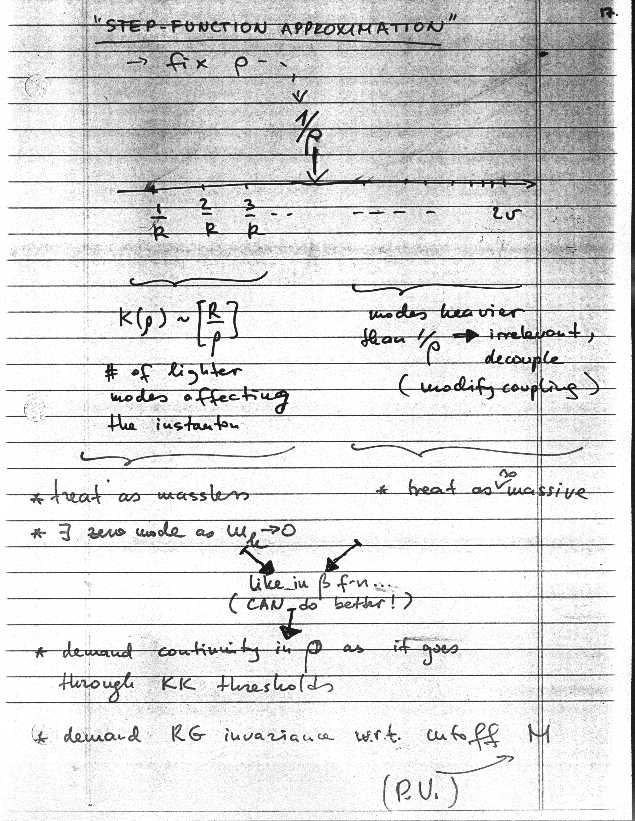 17.
"STEP-FUNCTION APPROXIMATION"
→ fix ρ - - .
1/ρ
1/R 2/R 3/R - - - - - - - 2v
K(ρ) ~ [R/ρ]
# of lighter
modes affecting
the instanton
modes heavier
than 1/ρ → irrelevant,
decouple
(modify coupling)
* treat as massless
* ∃ zero mode as m_k → 0
* treat as ∞ massive
like in β f-n...
(CAN do better!)
* demand continuity in ρ as it goes
through KK thresholds
* demand RG invariance w.r.t. cutoff M
(P.V.)